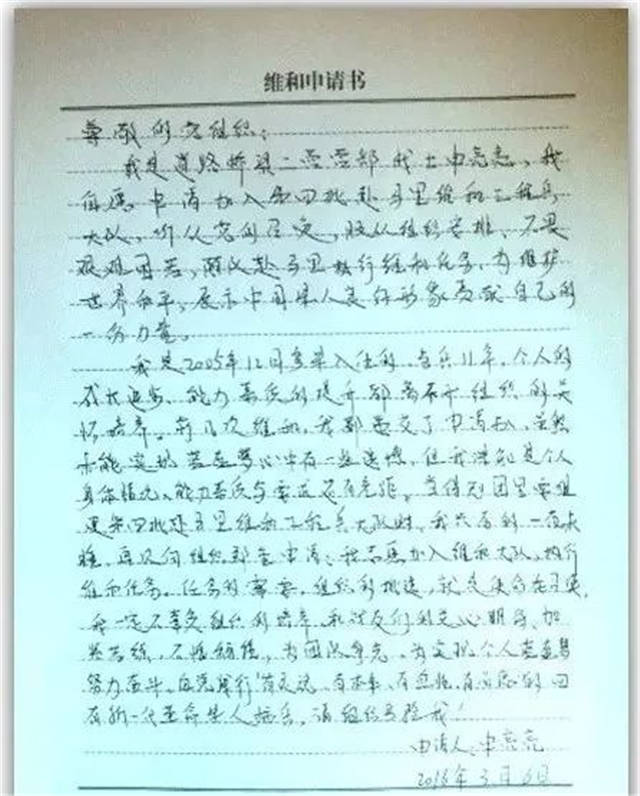 维和申请书
尊敬的党组织：
我是道路桥梁二营营部战士申亮亮，我
自愿申请加入第四批赴马里维和工程兵
大队，听从党的召唤，服从组织安排，不畏
艰难困苦，赴马里执行维和任务，为维护
世界和平，展示中国军人良好形象贡献自己的
一份力量。
我是2005年12月参军入伍的，当兵11年，个人的
成长进步、能力素质的提升都离不开组织的关
怀培养。前几次维和，我都递交了申请书，虽然
未能实现，心中有一些遗憾，但我深知是个人
身体情况、能力素质与要求还有差距。当得知团里要组
建第四批赴马里维和工程兵大队时，我
再次向组织申请：我志愿加入维和大队，执行
维和任务。任务的需要，组织的挑选，就是使命
我一定不辜负组织的培养和战友们的关心
苦练，不怕，为团队争光，为实现个人
努力奋斗，有灵魂、有本事、有血性、有品德的四
有新一代革命军人，请组织考验我！
申请人：申亮亮
2016年3月6日